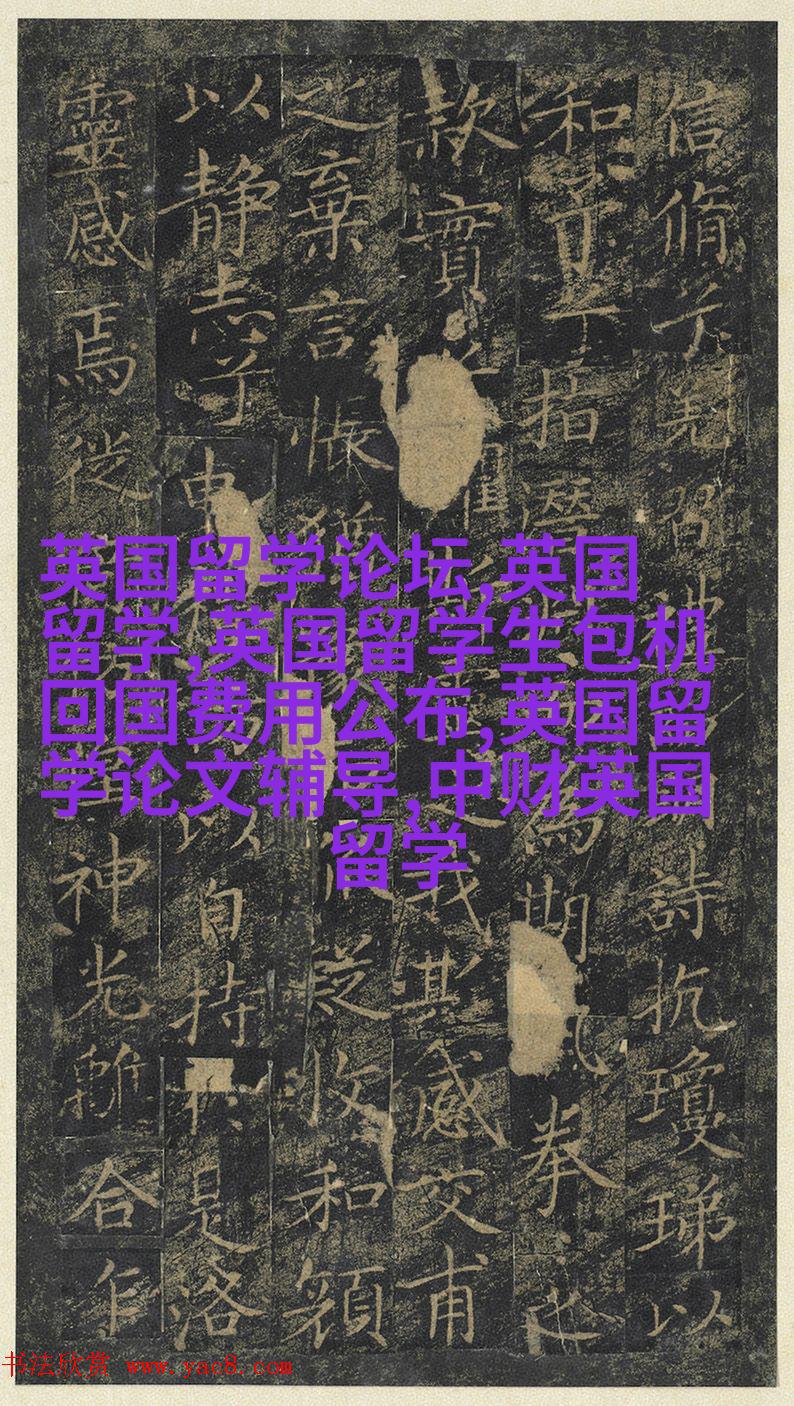 信脩兮羌習禮詩抗瓊珶以
和予兮指潛為期拳之
款實之懼之我其感交甫
之棄言悵猶從收和顏
以静志兮申以自持是洛
靈感焉徙神光離合乍
英国留学论坛,英国
留学,英国留学生包机
回国费用公布,英国留
学论文辅导,中财英国
留学
书法欣赏 www.yac8.com